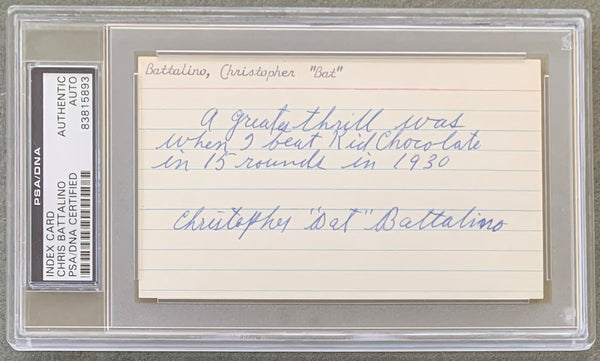 Battalino, Christopher "Bat"
A greates thrill was
when I beat Kid Chocolate
in 15 rounds in 1930
Christopher "Bat" Battalino
PSA/DNA
INDEX CARD
CHRIS BATTALINO
PSA/DNA CERTIFIED
AUTHENTIC
AUTO
83815893